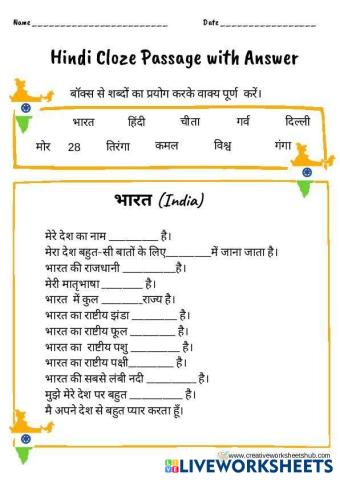 Name ____________________ Date ____________________
Hindi Cloze Passage with Answer
बॉक्स से शब्दों का प्रयोग करके वाक्य पूर्ण करें।
भारत हिंदी चीता गर्व दिल्ली
मोर 28 तिरंगा कमल विश्व गंगा
भारत (India)
मेरे देश का नाम _________ है।
मेरा देश बहुत-सी बातों के लिए________में जाना जाता है।
भारत की राजधानी __________है।
मेरी मातृभाषा ________ है।
भारत में कुल ________राज्य है।
भारत का राष्टीय झंडा _________ है।
भारत का राष्टीय फूल _________ है।
भारत का राष्टीय पशु _________ है।
भारत का राष्टीय पक्षी_________ है।
भारत की सबसे लंबी नदी _________ है।
मुझे मेरे देश पर बहुत _________ है।
मै अपने देश से बहुत प्यार करता हूँ।
www.creativeworksheetshub.com
LIVEWORKSHEETS